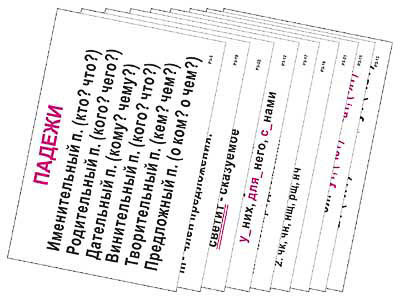 ПАДЕЖИ
Именительный п. (кто? что?)
Родительный п. (кого? чего?)
Дательный п. (кому? чему?)
Винительный п. (кого? что?)
Творительный п. (кем? чем?)
Предложный п. (о ком? о чем?)
член предложения.
светит - сказуемое
у_них, для_него, с_нами
2. чк, чн, нщ, рщ, нч